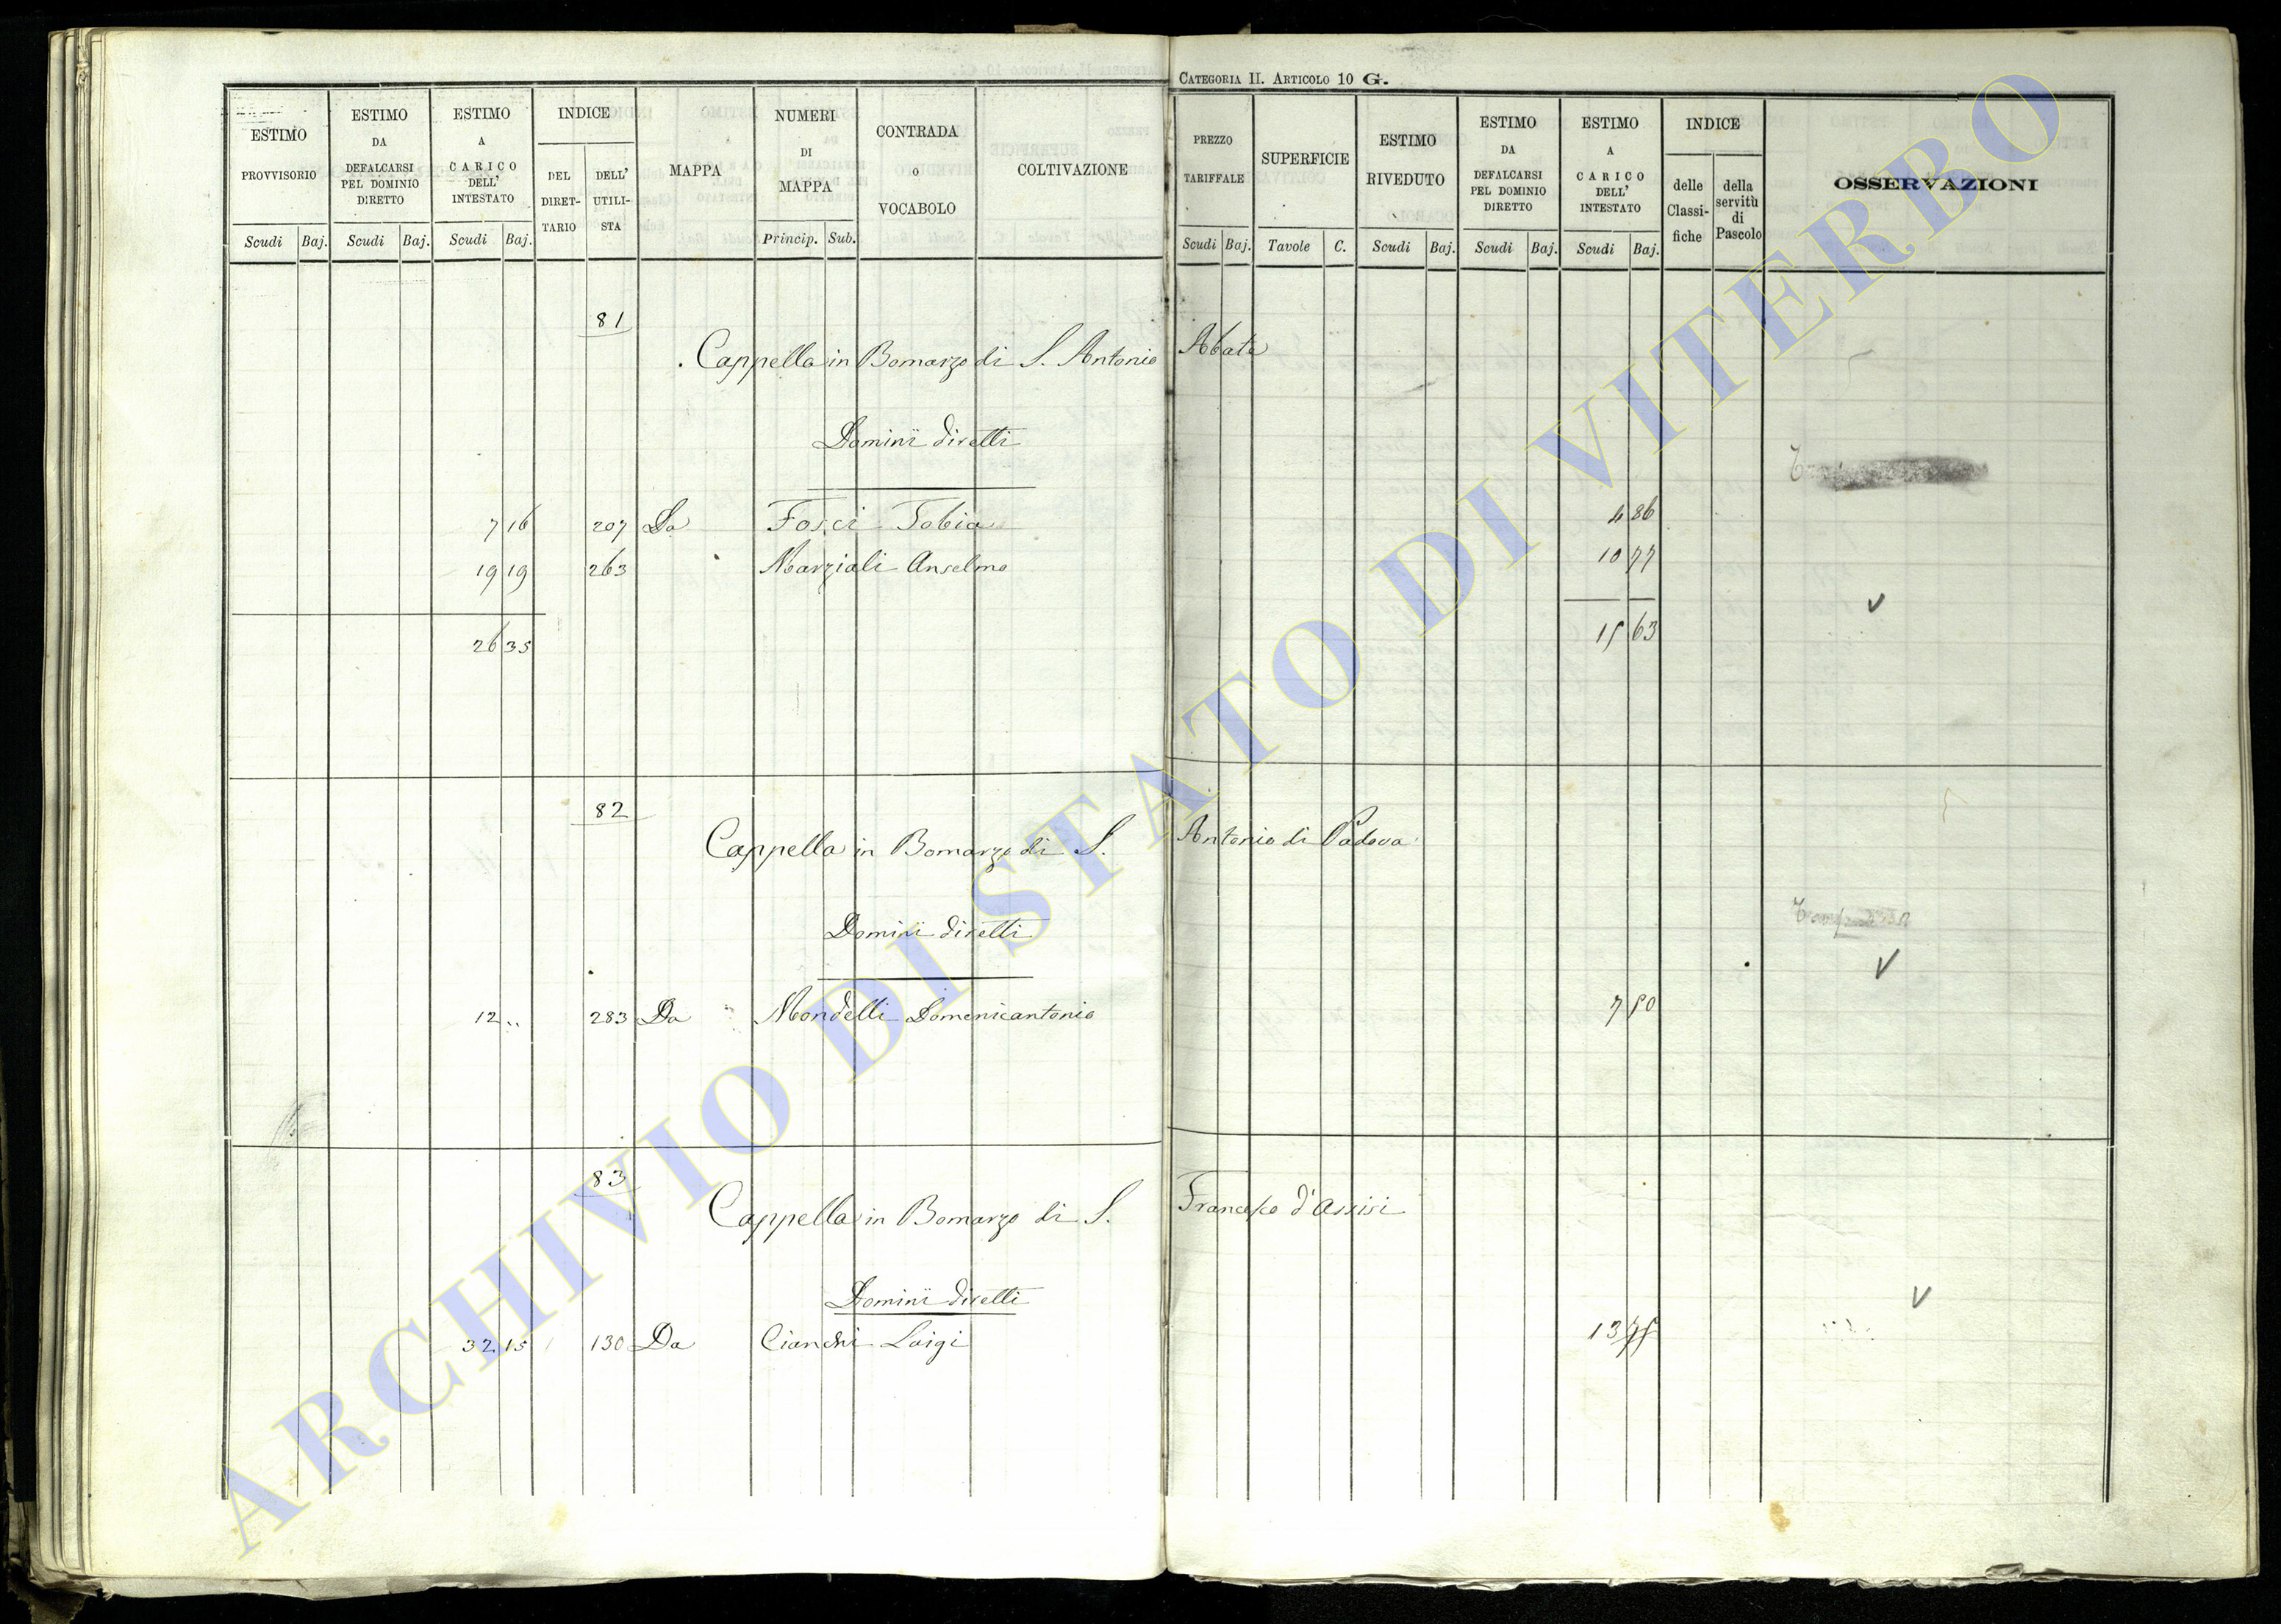 CATEGORIA II. ARTICOLO 10 G.
ESTIMO PROVVISORIO Scudi Baj.
ESTIMO DA DEFALCARSI PEL DOMINIO DIRETTO Scudi Baj.
ESTIMO A CARICO DELL' INTESTATO Scudi Baj.
INDICE DEL DIRETTARIO DELL' UTILISTA
MAPPA
NUMERI DI MAPPA Princip. Sub.
CONTRADA o VOCABOLO
COLTIVAZIONE
PREZZO TARIFFALE Scudi Baj.
SUPERFICIE Tavole C.
ESTIMO RIVEDUTO Scudi Baj.
ESTIMO DA DEFALCARSI PEL DOMINIO DIRETTO Scudi Baj.
ESTIMO A CARICO DELL' INTESTATO Scudi Baj.
INDICE delle Classifiche della servitù di Pascolo
OSSERVAZIONI
81
Cappella in Bomarzo di S. Antonio Abate
Dominii diretti
7 16 207 Da Fosci Tobia 4 86
19 19 263 Marziali Anselmo 10 77
26 35 15 63
82
Cappella in Bomarzo di S. Antonio di Padova
Dominii diretti
12 .. 283 Da Mondelli Domenicantonio 7 50
83
Cappella in Bomarzo di S. Francesco d'Assisi
Dominii diretti
32 15 130 Da Cianchi Luigi 13 75
ARCHIVIO DI STATO DI VITERBO